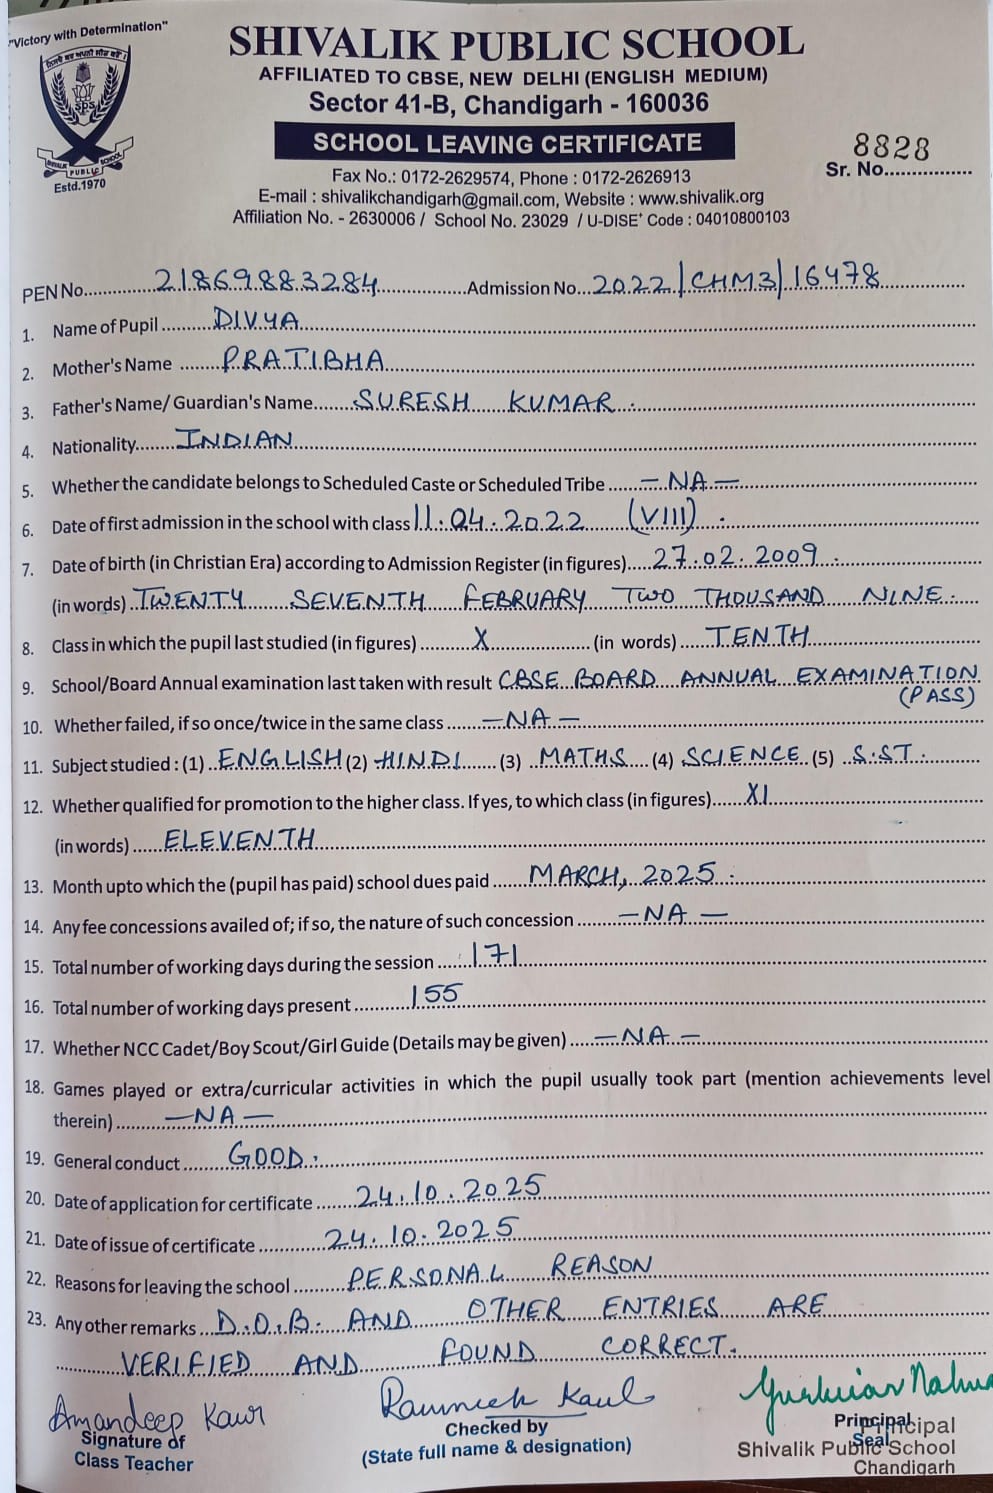 "Victory with Determination"
SHIVALIK PUBLIC SCHOOL
AFFILIATED TO CBSE, NEW DELHI (ENGLISH MEDIUM)
Sector 41-B, Chandigarh - 160036
SCHOOL LEAVING CERTIFICATE
SPS
SHIVALIK PUBLIC SCHOOL
Estd.1970
8828
Sr. No................
Fax No.: 0172-2629574, Phone : 0172-2626913
E-mail : shivalikchandigarh@gmail.com, Website : www.shivalik.org
Affiliation No. - 2630006 / School No. 23029 / U-DISE+ Code : 04010800103
PEN No. 21869883284 Admission No. 2022/CHM3/16478
1. Name of Pupil DIVYA
2. Mother's Name PRATIBHA
3. Father's Name/ Guardian's Name SURESH KUMAR .
4. Nationality INDIAN
5. Whether the candidate belongs to Scheduled Caste or Scheduled Tribe — NA —
6. Date of first admission in the school with class 11.04.2022 (VIII) .
7. Date of birth (in Christian Era) according to Admission Register (in figures) 27.02.2009 .
(in words) TWENTY SEVENTH FEBRUARY TWO THOUSAND NINE.
8. Class in which the pupil last studied (in figures) X (in words) TENTH
9. School/Board Annual examination last taken with result CBSE BOARD ANNUAL EXAMINATION
(PASS)
10. Whether failed, if so once/twice in the same class —NA—
11. Subject studied : (1) ENGLISH (2) HINDI (3) MATHS (4) SCIENCE (5) S.ST.
12. Whether qualified for promotion to the higher class. If yes, to which class (in figures) XI
(in words) ELEVENTH
13. Month upto which the (pupil has paid) school dues paid MARCH, 2025 .
14. Any fee concessions availed of; if so, the nature of such concession —NA—
15. Total number of working days during the session 171
16. Total number of working days present 155
17. Whether NCC Cadet/Boy Scout/Girl Guide (Details may be given) —NA—
18. Games played or extra/curricular activities in which the pupil usually took part (mention achievements level
therein) —NA—
19. General conduct GOOD .
20. Date of application for certificate 24.10.2025
21. Date of issue of certificate 24.10.2025
22. Reasons for leaving the school PERSONAL REASON
23. Any other remarks D.O.B. AND OTHER ENTRIES ARE
VERIFIED AND FOUND CORRECT.
Amandeep Kaur
Signature of
Class Teacher
Kaul
Checked by
(State full name & designation)
Principal
Seal
Principal
Shivalik Public School
Chandigarh